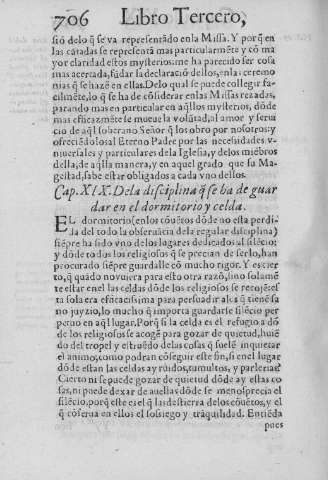 706 Libro Tercero,
sió delo q̃ se va representádo enla Missa. Y porq̃ en
las cátadas se representá mas particularméte y có ma
yor claridad estos mysterios: me ha parecido ser cosa
mas acertada, fúdar la declaració dellos, enla s ceremo
nias q̃ se hazé en ellas. Delo qual se puede collegir fa-
cilméte, lo q̃ se ha de cósiderar enlas Missas rezadas,
parando mas en particular en aq̃llos mysterios, dóde
mas efficazméte se mueue la volútad, al amor y serui
cio de aq̃l soberano Señor q̃ los obro por nosotros: y
ofreciédo los al Eterno Padre por las necessidades v-
niuersales y particulares dela Iglesia, y delos miébros
della, de aq̃lla manera, y en aquel grado que su Ma-
gestad, sabe estar obligados a cada vno dellos.
Cap. XIX. Dela disciplina q̃ se ha de guar
dar en el dormitorio y celda.
EL dormitorio (en los cóuétos dóde no esta perdi-
da del todo la obseruácia dela regular disciplina)
siépre ha sido vno delos lugares dedicados al silécio:
y dóde todos los religiosos q̃ se precian de serlo, han
procurado siépre guardalle có mucho rigor. Y es cier
to, q̃ quádo no vuiera para esto otra razó, sino solamé
te estar en el las celdas dóde los religiosos se recojé: es
ta sola era eficacissima para persuadir al q̃ tiené sa
no juyzio, lo mucho q̃ importa guardarse silécio per
petuo en aq̃l lugar. Porq̃ si la celda es el refugio adó
de los religiosos se acogé para gozar de quietud, huié
do del tropel y estruédo delas cosas q̃ suelé inquietar
el animo, como podran cóseguir este fin, si en el lugar
dóde estan las celdas ay ruidos, tumultos, y parlerias?
Cierto ni se puede gozar de quietud dóde ay estas co
sas, ni puede dexar de auellas dóde se menosprecia el
silécio, porq̃ este es el q̃ las destierra delos cóuétos, y el
q̃ cóserua en ellos el sossiego y tráquilidad. Entiéda
pues